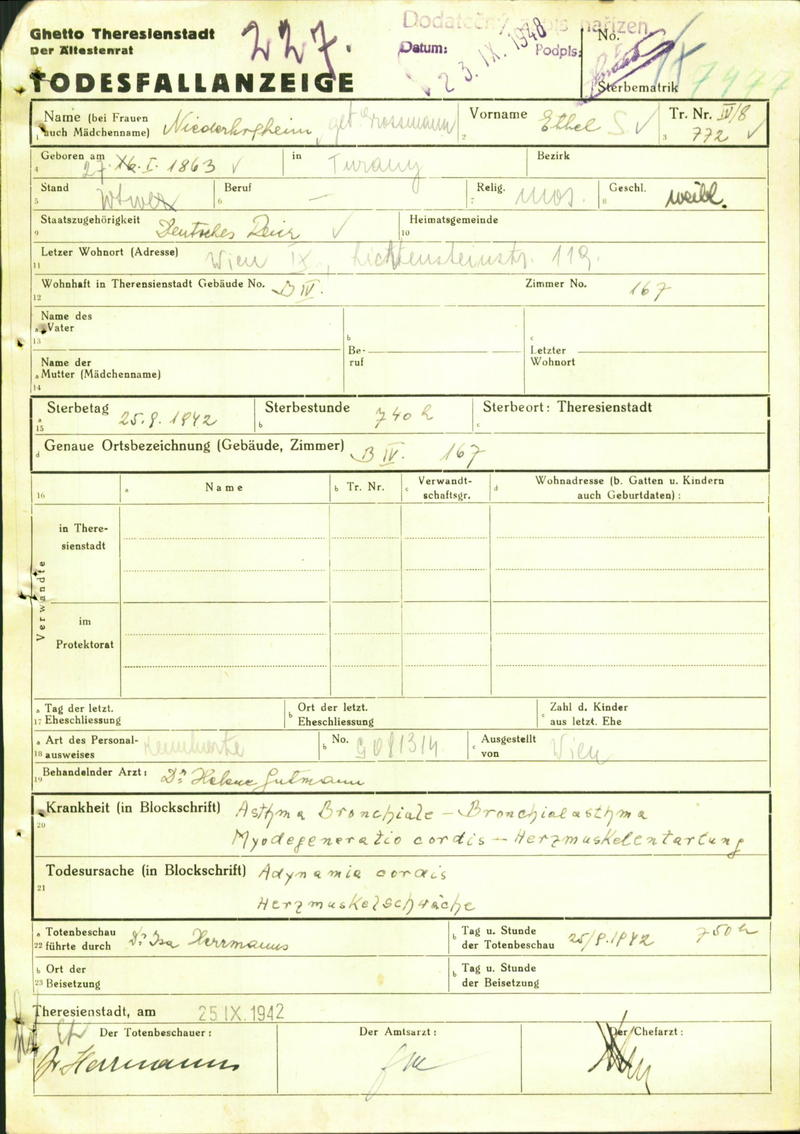 Ghetto Theresienstadt
Der Ältestenrat
227.
Dodatečný pis nařízen
Datum: 23. IX. 1948 Podpis:
No.
7977
Sterbematrik
TODESFALLANZEIGE
Name (bei Frauen auch Mädchenname) geb. Grossmann
Vorname Ethel S
Tr. Nr. IV/8
1 2 3 772
Geboren am 27. I. 1863 in Turany Bezirk
4
Stand Witwe Beruf — Relig. mos. Geschl. weibl.
5 6 7 8
Staatszugehörigkeit Deutsches Heimatsgemeinde
9 10
Letzer Wohnort (Adresse) Wien IX., Lichtensteinstr. 119.
11
Wohnhaft in Therensienstadt Gebäude No. B IV. Zimmer No. 167
12
Name des
a Vater
13
b
Be-
ruf
c
Letzter
Wohnort
Name der
a Mutter (Mädchenname)
14
Sterbetag 25.9.1942 Sterbestunde 740 h Sterbeort: Theresienstadt
a 15 b c
d Genaue Ortsbezeichnung (Gebäude, Zimmer) B IV. 167
16 a Name b Tr. Nr. c Verwandt-
schaftsgr. d Wohnadresse (b. Gatten u. Kindern
auch Geburtdaten) :
Verwandte
in There-
sienstadt
im
Protektorat
a Tag der letzt.
17 Eheschliessung
b Ort der letzt.
Eheschliessung
c Zahl d. Kinder
aus letzt. Ehe
a Art des Personal-
18 ausweises Kennkarte
b No. G081314
c Ausgestellt
von Wien
19 Behandelnder Arzt: Dr. Helene Gutmann
Krankheit (in Blockschrift) Asthma Bronchiale – Bronchialasthma
20
Myodegeneratio cordis – Herzmuskelentartung
Todesursache (in Blockschrift) Adynamia cordis
21
Herzmuskelschwäche
a Totenbeschau
22 führte durch Dr. Herrmanns
b Tag u. Stunde
der Totenbeschau 25/9.1942 750 h
b Ort der
23 Beisetzung
b Tag u. Stunde
der Beisetzung
Theresienstadt, am 25 IX. 1942
Der Totenbeschauer: Der Amtsarzt: Der Chefarzt:
Dr Herrmanns